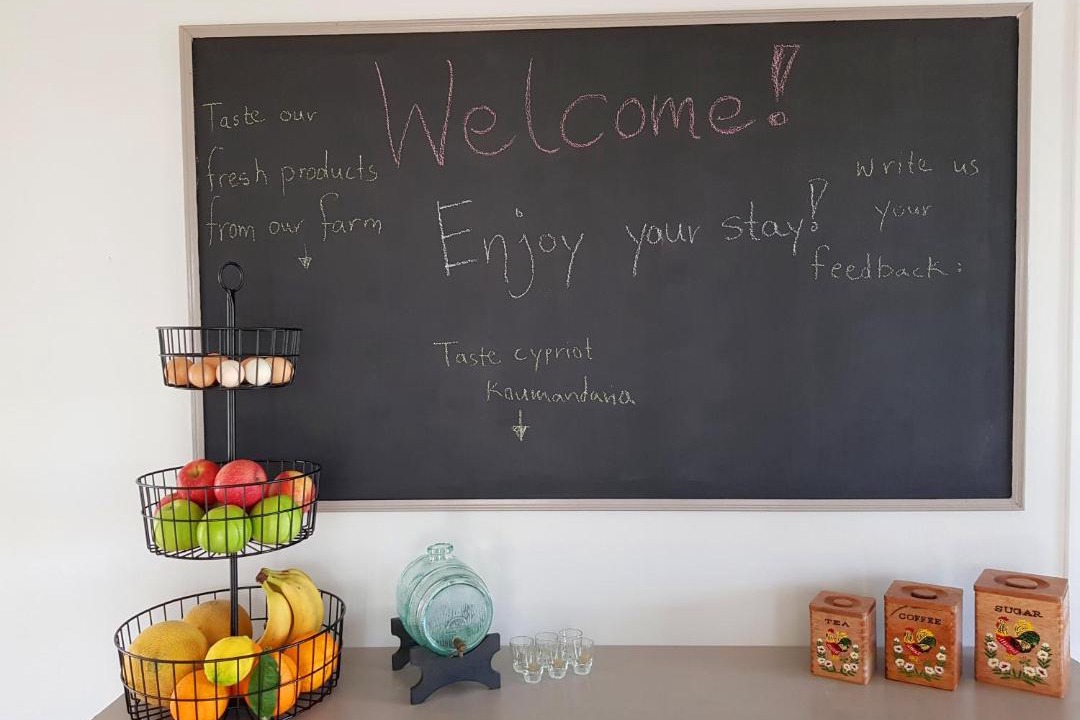 Welcome!
Taste our
fresh products
from our farm
Enjoy your stay!
write us
your
feedback:
Taste cypriot
Koumandaria
TEA
COFFEE
SUGAR